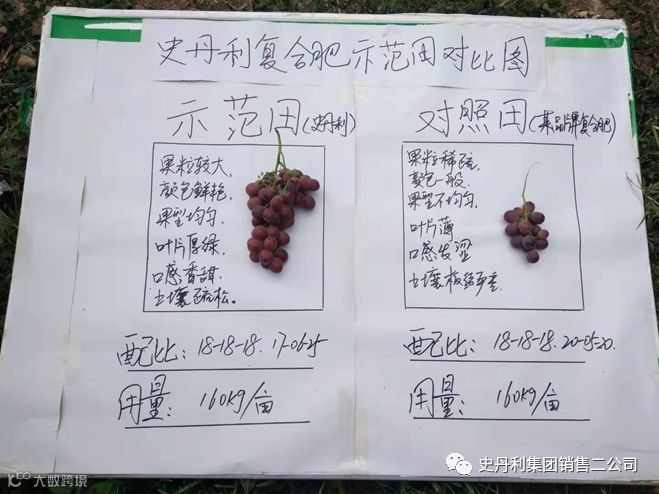 史丹利复合肥示范田对比图
示范田(史丹利)
果粒较大,
颜色鲜艳,
果型均匀,
叶片厚绿,
口感香甜,
土壤疏松。
配比:18-18-18. 17-06-25
用量:160kg/亩
对照田(某品牌复合肥)
果粒稀疏,
颜色一般,
果型不均匀,
叶片薄
口感发涩
土壤板结严重
配比:18-18-18. 20-05-20.
用量:160kg/亩
大数跨境
史丹利集团销售二公司